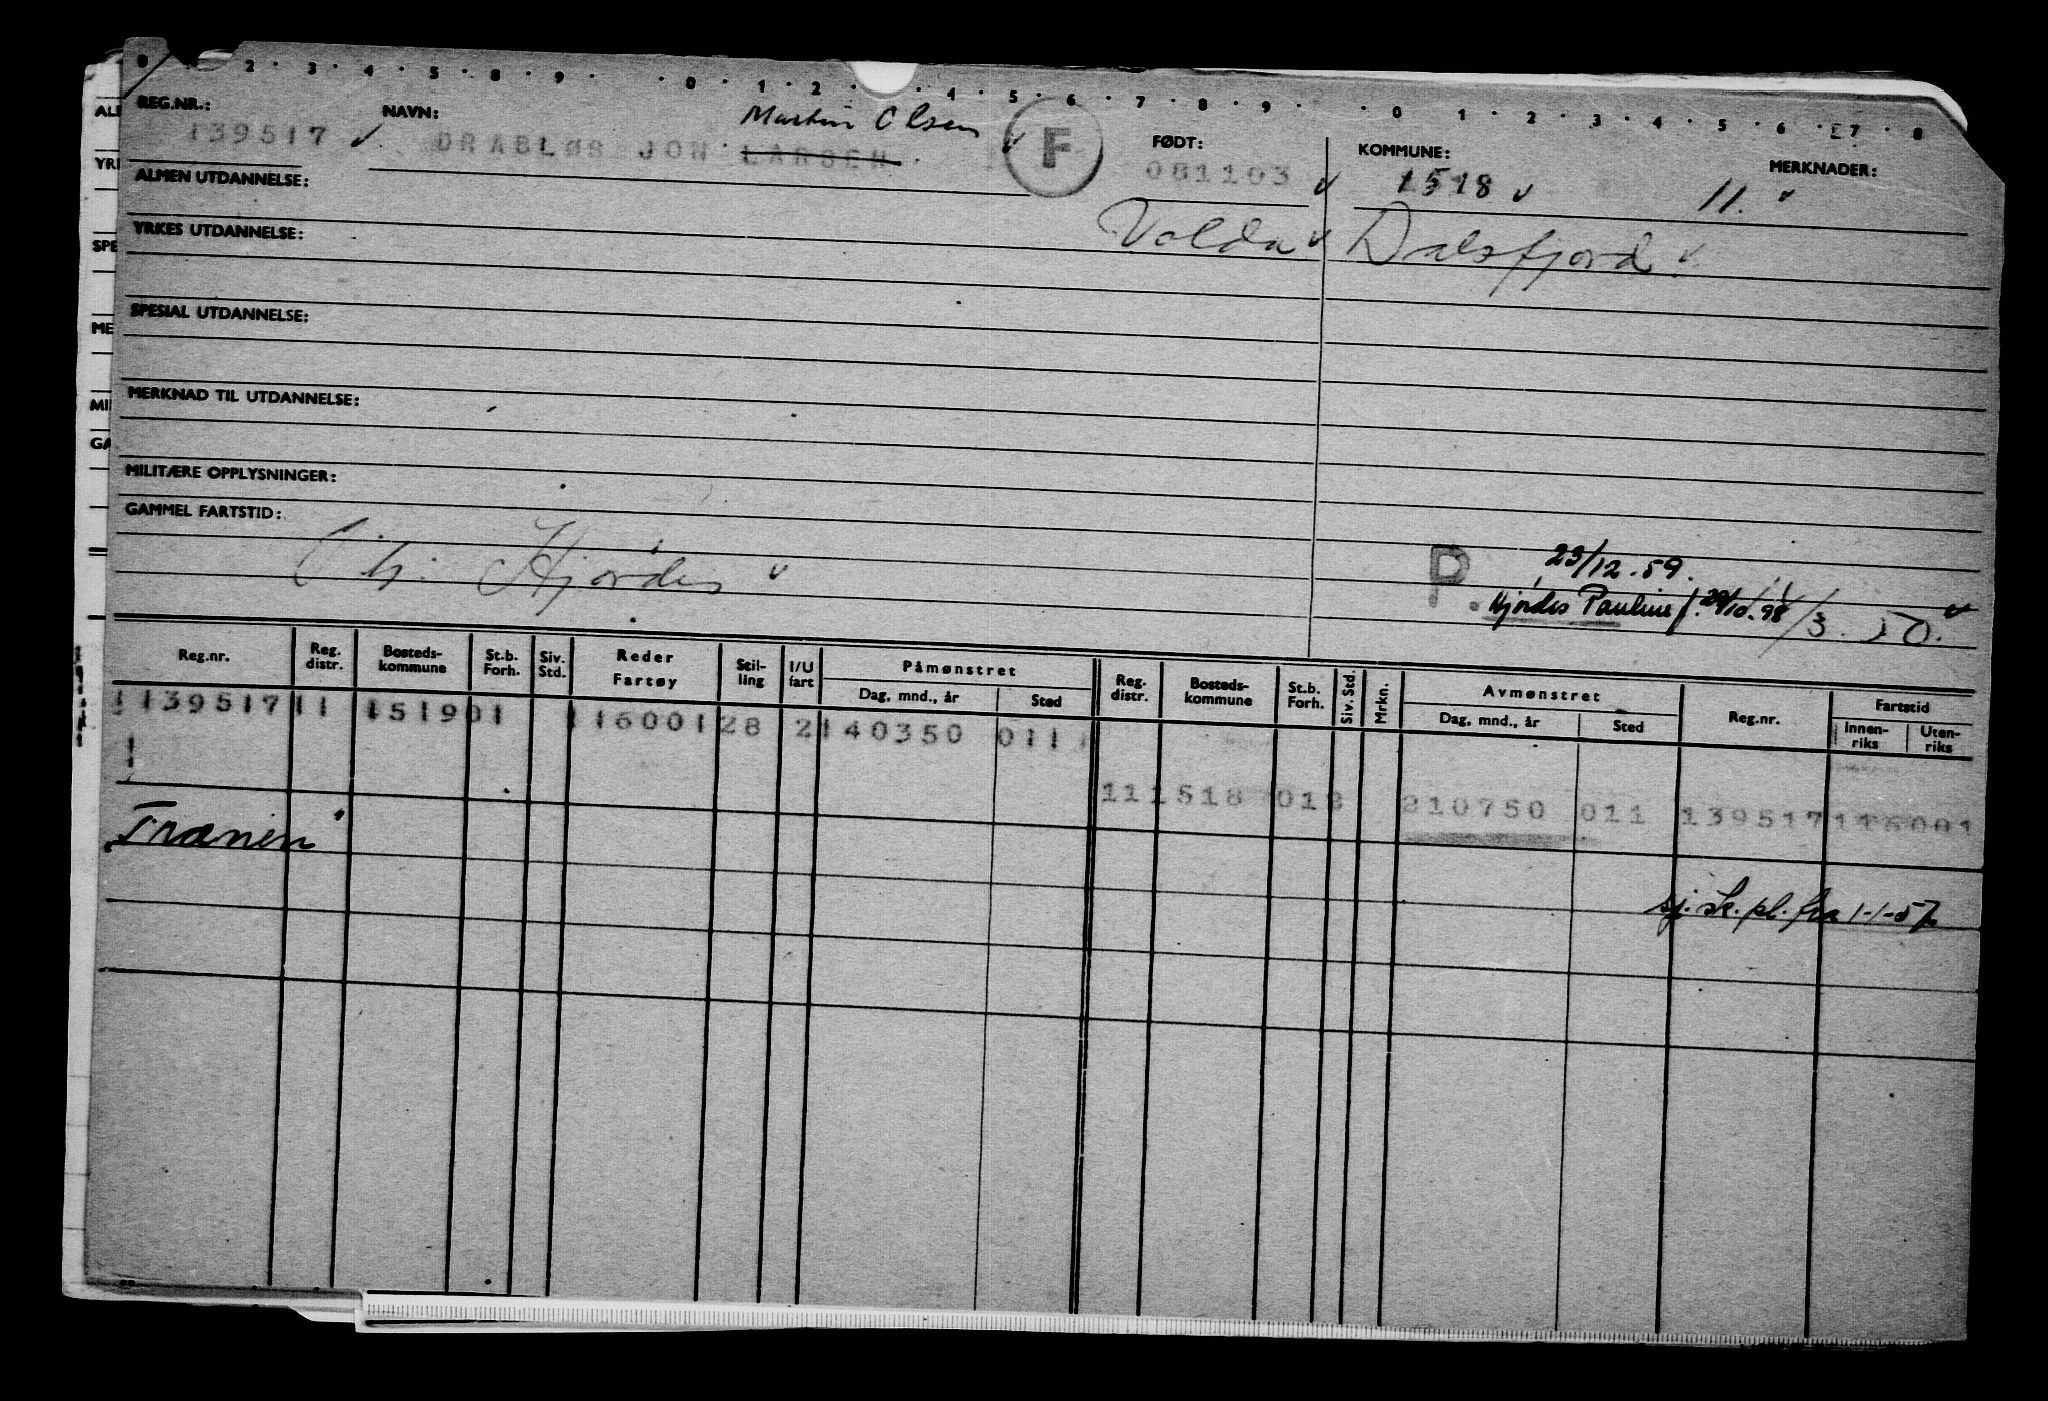 0 · 2 · 3 · 4 · 5 · 8 · 9 · · 0 · 1 · 2 · 4 · 5 · 6 · 7 · 8 · 9 · · 0 · 1 · 2 · 3 · 4 · 5 · 6 · 7 · 8
REG.NR.: NAVN: Martin Olsen FØDT: KOMMUNE: MERKNADER:
139517 DRABLØS JON LARSEN F 081103 1518 11.
ALMEN UTDANNELSE:
Volda Dalsfjord
YRKES UTDANNELSE:
SPESIAL UTDANNELSE:
MERKNAD TIL UTDANNELSE:
MILITÆRE OPPLYSNINGER:
GAMMEL FARTSTID:
Hjørdis
P. 23/12.59.
Hjørdis Pauline f. 29/10.98 /3.50.
Reg.nr. Reg. distr. Bosteds-kommune St.b. Forh. Siv. Std. Reder Fartøy Stil-ling I/U fart Påmønstret Dag, mnd., år Sted Reg. distr. Bosteds-kommune St.b. Forh. Siv. Std. Mrkn. Avmønstret Dag, mnd., år Sted Reg.nr. Fartstid Innen-riks Uten-riks
139517 11 151901 116001 28 2 140350 011
11 1518 012 210750 011 139517 116001
"Tranen"
sj. sk. pl. fra 1-1-57
ALM
YRK
SPE
ME
MIL
GA